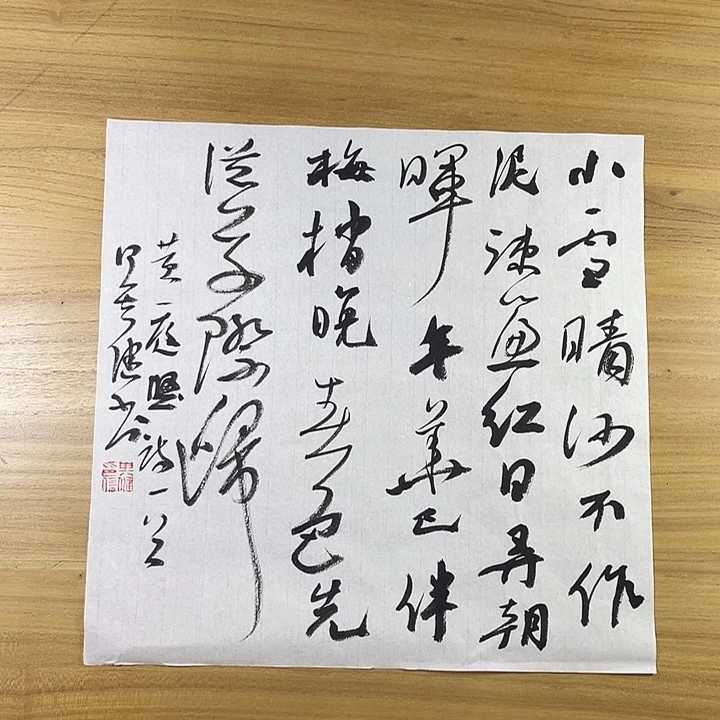 小雪晴沙不作
泥疎簾红日弄朝
暉年華已伴
梅梢晚春色先
從草際歸
黄庭堅诗一首
健书